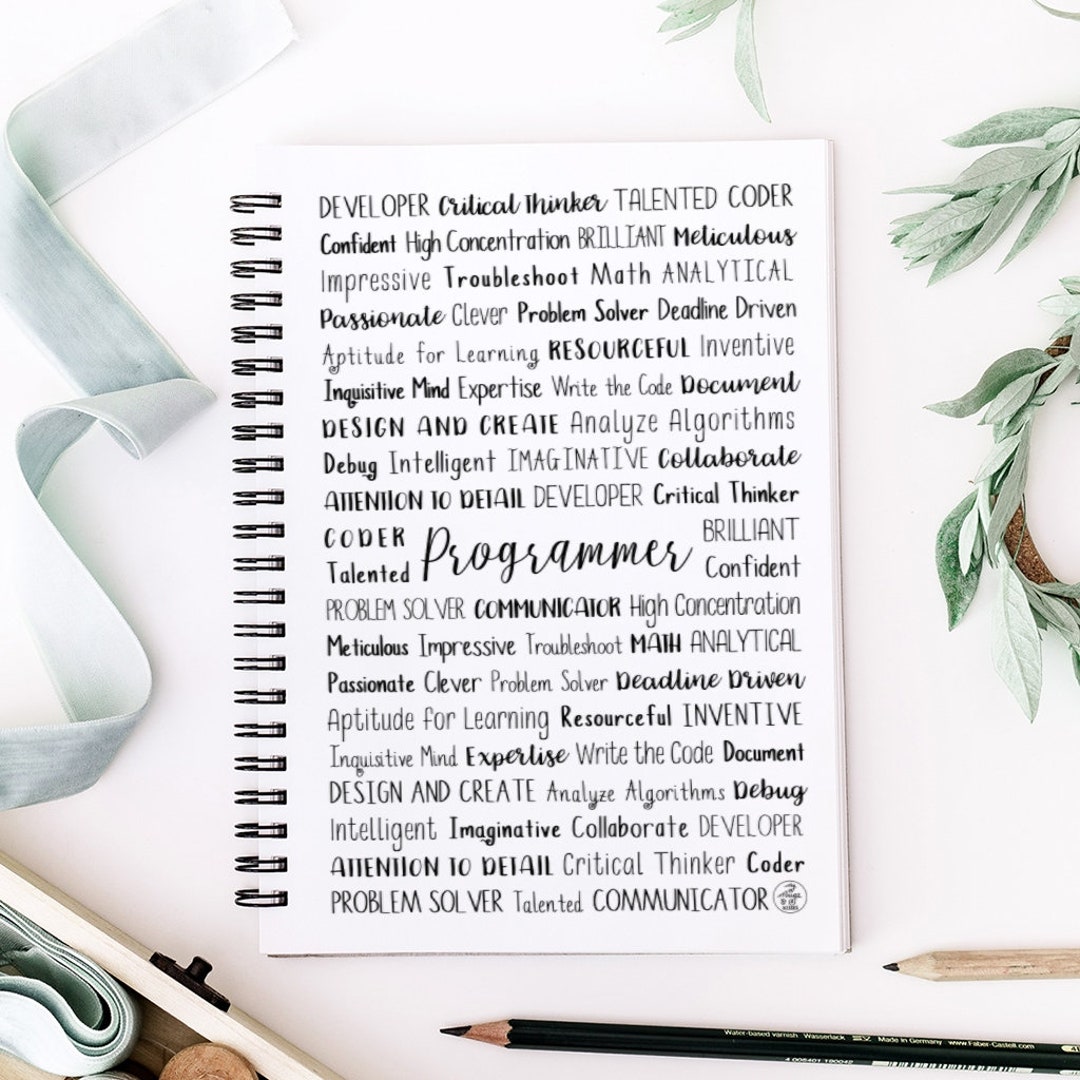 DEVELOPER Critical Thinker TALENTED CODER
Confident High Concentration BRILLIANT Meticulous
Impressive Troubleshoot Math ANALYTICAL
Passionate Clever Problem Solver Deadline Driven
Aptitude for Learning RESOURCEFUL Inventive
Inquisitive Mind Expertise Write the Code Document
DESIGN AND CREATE Analyze Algorithms
Debug Intelligent IMAGINATIVE Collaborate
ATTENTION TO DETAIL DEVELOPER Critical Thinker
CODER Programmer BRILLIANT
Talented Confident
PROBLEM SOLVER COMMUNICATOR High Concentration
Meticulous Impressive Troubleshoot MATH ANALYTICAL
Passionate Clever Problem Solver Deadline Driven
Aptitude for Learning Resourceful INVENTIVE
Inquisitive Mind Expertise Write the Code Document
DESIGN AND CREATE Analyze Algorithms Debug
Intelligent Imaginative Collaborate DEVELOPER
ATTENTION TO DETAIL Critical Thinker Coder
PROBLEM SOLVER Talented COMMUNICATOR
Water-based varnish Wasserlack Made in Germany www.Faber-Castell.com
4 005401 190042